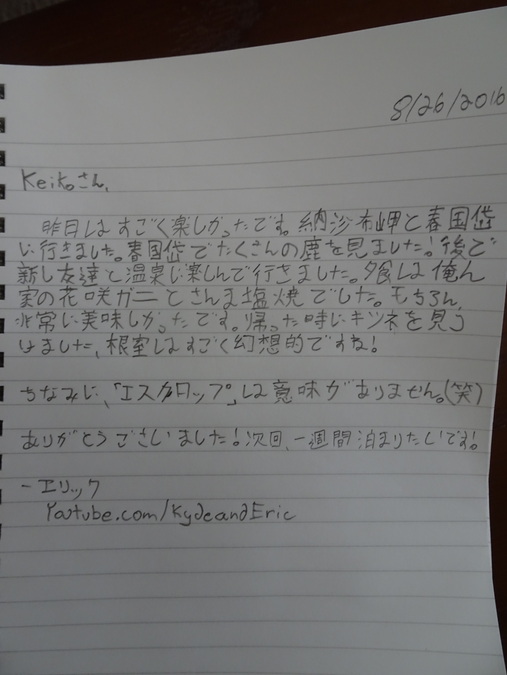 8/26/2016
Keikoさん、
昨日はすごく楽しかったです。納沙布岬と春国岱
に行きました。春国岱でたくさんの鹿を見ました!後で
新し友達と温泉に楽しんで行きました。夕食は俺ん
家の花咲ガニとさんま塩焼でした。もちろん、
非常に美味しかったです。帰った時にキツネを見う
けました、根室はすごく幻想的ですね!
ちなみに、「エスカロップ」は意味がありません。(笑)
ありがとうございました!次回、一週間泊まりたいです!
-エリック
Youtube.com/KydeandEric